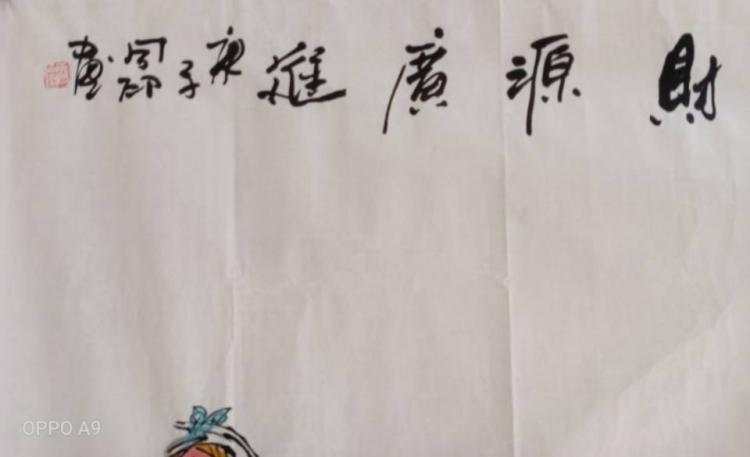 財源廣進
庚子
畫
OPPO A9